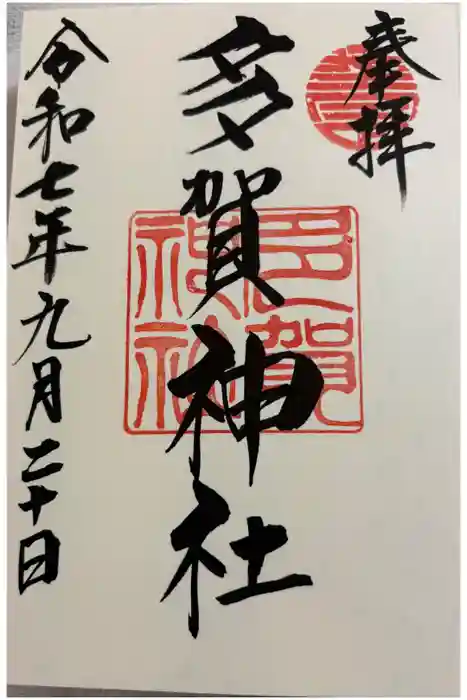 奉拝
多賀神社
多賀
神社
令和七年九月二十日